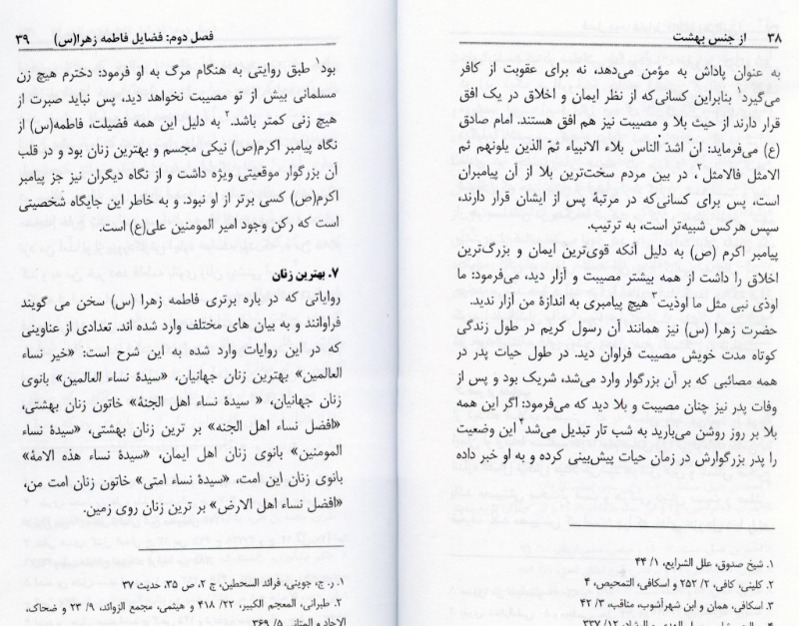 ۳۸ از جنس بهشت
به عنوان پاداش به مؤمن می‌دهد، نه برای عقوبت از کافر
می‌گیرد۱ بنابراین کسانی‌که از نظر ایمان و اخلاق در یک افق
قرار دارند از حیث بلا و مصیبت نیز هم افق هستند. امام صادق
(ع) می‌فرماید: انّ اشدّ الناس بلاء الانبیاء ثمّ الذین یلونهم ثم
الامثل فالامثل۲، در بین مردم سخت‌ترین بلا از آن پیامبران
است، پس برای کسانی‌که در مرتبهٔ پس از ایشان قرار دارند،
سپس هرکس شبیه‌تر است، به ترتیب.
پیامبر اکرم (ص) به دلیل آنکه قوی‌ترین ایمان و بزرگ‌ترین
اخلاق را داشت از همه بیشتر مصیبت و آزار دید، می‌فرمود: ما
اوذی نبی مثل ما اوذیت۳ هیچ پیامبری به اندازهٔ من آزار ندید.
حضرت زهرا (س) نیز همانند آن رسول کریم در طول زندگی
کوتاه مدت خویش مصیبت فراوان دید. در طول حیات پدر در
همه مصائبی که بر آن بزرگوار وارد می‌شد، شریک بود و پس از
وفات پدر نیز چنان مصیبت و بلا دید که می‌فرمود: اگر این همه
بلا بر روز روشن می‌بارید به شب تار تبدیل می‌شد۴ این وضعیت
را پدر بزرگوارش در زمان حیات پیش‌بینی کرده و به او خبر داده
۱. شیخ صدوق، علل الشرایع، ۱/ ۴۴
۲. کلینی، کافی، ۲/ ۲۵۲ و اسکافی، التمحیص، ۴
۳. اسکافی، همان و ابن شهرآشوب، مناقب، ۳/ ۴۲
فصل دوم: فضایل فاطمه زهرا(س) ۳۹
بود۱ طبق روایتی به هنگام مرگ به او فرمود: دخترم هیچ زن
مسلمانی بیش از تو مصیبت نخواهد دید، پس نباید صبرت از
هیچ زنی کمتر باشد.۲ به دلیل این همه فضیلت، فاطمه(س) از
نگاه پیامبر اکرم(ص) نیکی مجسم و بهترین زنان بود و در قلب
آن بزرگوار موقعیتی ویژه داشت و از نگاه دیگران نیز جز پیامبر
اکرم(ص) کسی برتر از او نبود. و به خاطر این جایگاه شخصیتی
است که رکن وجود امیر المومنین علی(ع) است.
۷. بهترین زنان
روایاتی که در باره برتری فاطمه زهرا (س) سخن می گویند
فراوانند و به بیان های مختلف وارد شده اند. تعدادی از عناوینی
که در این روایات وارد شده به این شرح است: «خیر نساء
العالمین» بهترین زنان جهانیان، «سیدة نساء العالمین» بانوی
زنان جهانیان، « سیدة نساء اهل الجنة» خاتون زنان بهشتی،
«افضل نساء اهل الجنه» بر ترین زنان بهشتی، «سیدة نساء
المومنین» بانوی زنان اهل ایمان، «سیدة نساء هذه الامة»
بانوی زنان این امت، «سیدة نساء امتی» خاتون زنان امت من،
«افضل نساء اهل الارض» بر ترین زنان روی زمین.
۱. ر. ج، جوینی، فرائد السحطین، ج ۲، ص ۳۵، حدیث ۳۷
۲. طبرانی، المعجم الکبیر، ۲۲/ ۴۱۸ و هیتمی، مجمع الزوائد، ۹/ ۲۳ و ضحاک،
الاحاد و المثانی ۵/ ۳۶۹